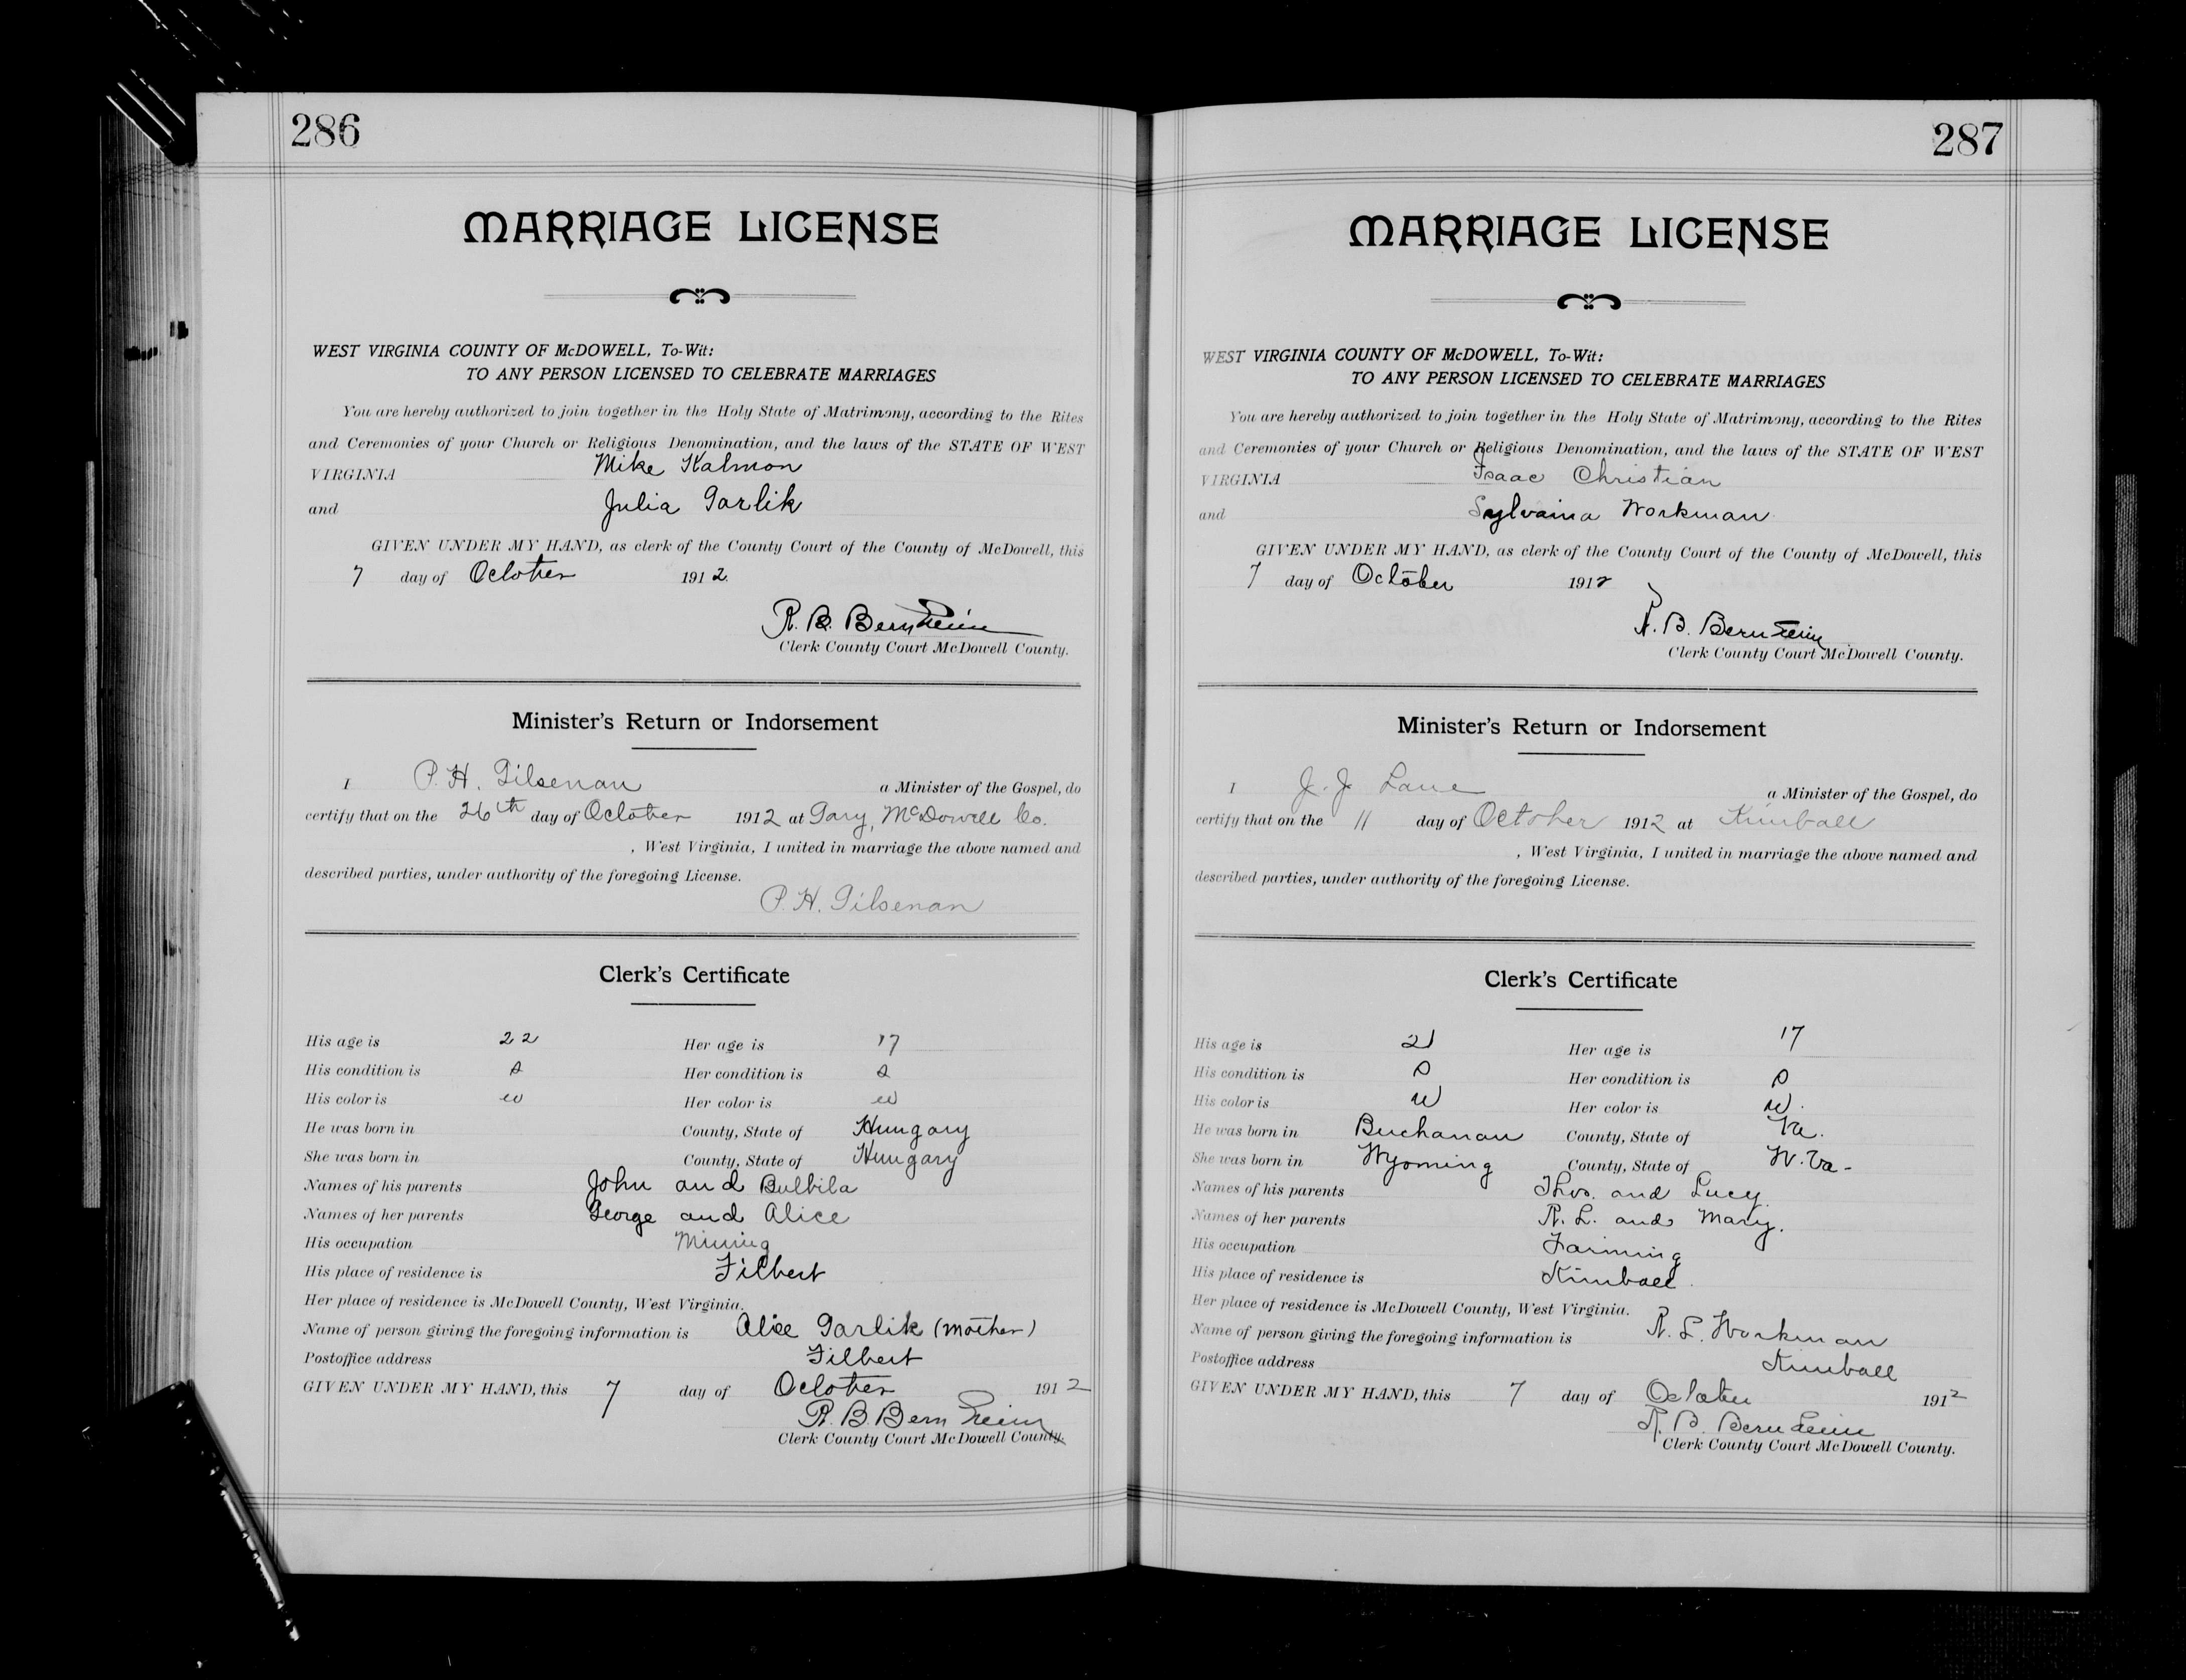 286
MARRIAGE LICENSE
WEST VIRGINIA COUNTY OF McDOWELL, To-Wit:
TO ANY PERSON LICENSED TO CELEBRATE MARRIAGES
You are hereby authorized to join together in the Holy State of Matrimony, according to the Rites
and Ceremonies of your Church or Religious Denomination, and the laws of the STATE OF WEST
VIRGINIA Mike Kalmon
and Julia Garlik
GIVEN UNDER MY HAND, as clerk of the County Court of the County of McDowell, this
7 day of October 1912.
R. B. Bernheim
Clerk County Court McDowell County.
Minister's Return or Indorsement
I P. H. Gilsenan a Minister of the Gospel, do
certify that on the 26th day of October 1912 at Gary, McDowell Co.
, West Virginia, I united in marriage the above named and
described parties, under authority of the foregoing License.
P. H. Gilsenan
Clerk's Certificate
His age is 22 Her age is 17
His condition is s Her condition is s
His color is w Her color is w
He was born in County, State of Hungary
She was born in County, State of Hungary
Names of his parents John and Bulbila
Names of her parents George and Alice
His occupation Mining
His place of residence is Filbert
Her place of residence is McDowell County, West Virginia.
Name of person giving the foregoing information is Alice Garlik (mother)
Postoffice address Filbert
GIVEN UNDER MY HAND, this 7 day of October 1912
R. B. Bernheim
Clerk County Court McDowell County.
287
MARRIAGE LICENSE
WEST VIRGINIA COUNTY OF McDOWELL, To-Wit:
TO ANY PERSON LICENSED TO CELEBRATE MARRIAGES
You are hereby authorized to join together in the Holy State of Matrimony, according to the Rites
and Ceremonies of your Church or Religious Denomination, and the laws of the STATE OF WEST
VIRGINIA Isaac Christian
and Sylvaina Workman
GIVEN UNDER MY HAND, as clerk of the County Court of the County of McDowell, this
7 day of October 1912
R. B. Bernheim
Clerk County Court McDowell County.
Minister's Return or Indorsement
I J. J. Lane a Minister of the Gospel, do
certify that on the 11 day of October 1912 at Kimball
, West Virginia, I united in marriage the above named and
described parties, under authority of the foregoing License.
Clerk's Certificate
His age is 21 Her age is 17
His condition is s Her condition is s
His color is w Her color is w.
He was born in Buchanan County, State of Va.
She was born in Wyoming County, State of W. Va-
Names of his parents Thos. and Lucy.
Names of her parents R. L. and Mary.
His occupation Farming
His place of residence is Kimball.
Her place of residence is McDowell County, West Virginia.
Name of person giving the foregoing information is R. L. Workman
Postoffice address Kimball
GIVEN UNDER MY HAND, this 7 day of October 1912
R. B. Bernheim
Clerk County Court McDowell County.